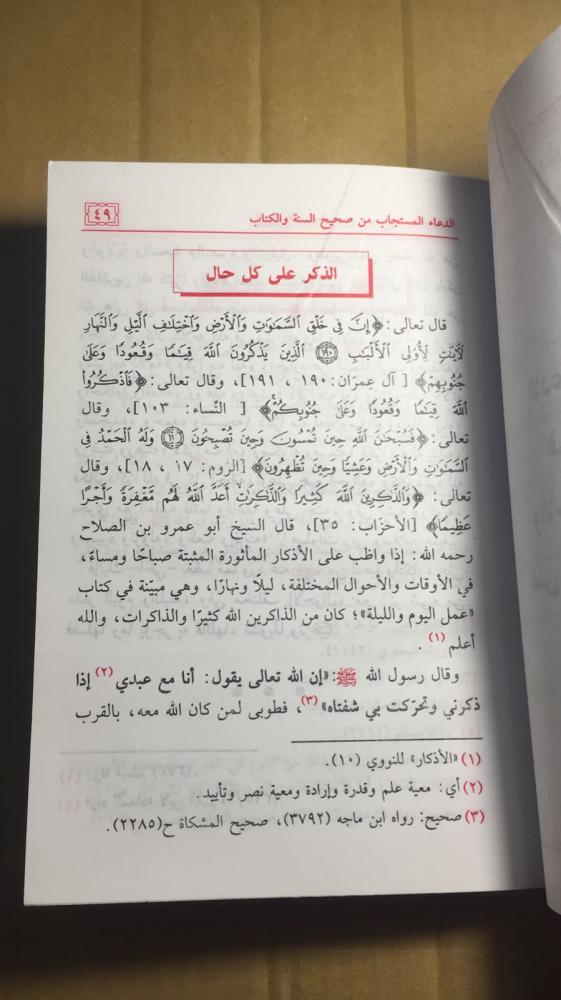 الدعاء المستجاب من صحيح السنة والكتاب
٤٩
الذكر على كل حال
قال تعالى: ﴿إِنَّ فِي خَلْقِ ٱلسَّمَٰوَٰتِ وَٱلْأَرْضِ وَٱخْتِلَٰفِ ٱلَّيْلِ وَٱلنَّهَارِ
لَأٓيَٰتٍ لِّأُو۟لِي ٱلْأَلْبَٰبِ ۝١٩٠ ٱلَّذِينَ يَذْكُرُونَ ٱللَّهَ قِيَٰمًا وَقُعُودًا وَعَلَىٰ
جُنُوبِهِمْ﴾ [آل عِمرَان: ١٩٠ ، ١٩١]، وقال تعالى: ﴿فَٱذْكُرُوا۟
ٱللَّهَ قِيَٰمًا وَقُعُودًا وَعَلَىٰ جُنُوبِكُمْ﴾ [النِّساء: ١٠٣]، وقال
تعالى: ﴿فَسُبْحَٰنَ ٱللَّهِ حِينَ تُمْسُونَ وَحِينَ تُصْبِحُونَ ۝١٧ وَلَهُ ٱلْحَمْدُ فِي
ٱلسَّمَٰوَٰتِ وَٱلْأَرْضِ وَعَشِيًّا وَحِينَ تُظْهِرُونَ﴾ [الرُّوم: ١٧ ، ١٨]، وقال
تعالى: ﴿وَٱلذَّٰكِرِينَ ٱللَّهَ كَثِيرًا وَٱلذَّٰكِرَٰتِ أَعَدَّ ٱللَّهُ لَهُم مَّغْفِرَةً وَأَجْرًا
عَظِيمًا﴾ [الأحزَاب: ٣٥]، قال الشيخ أبو عمرو بن الصلاح
رحمه الله: إذا واظب على الأذكار المأثورة المثبتة صباحًا ومساءً،
في الأوقات والأحوال المختلفة، ليلًا ونهارًا، وهي مبيّنة في كتاب
«عمل اليوم والليلة»؛ كان من الذاكرين الله كثيرًا والذاكرات، والله
أعلم (١).
وقال رسول الله ﷺ: «إن الله تعالى يقول: أنا مع عبدي (٢) إذا
ذكرني وتحرّكت بي شفتاه» (٣)، فطوبى لمن كان الله معه، بالقرب
(١) «الأذكار» للنووي (١٠).
(٢) أي: معية علم وقدرة وإرادة ومعية نصر وتأييد.
(٣) صحيح: رواه ابن ماجه (٣٧٩٢)، صحيح المشكاة ح(٢٢٨٥).